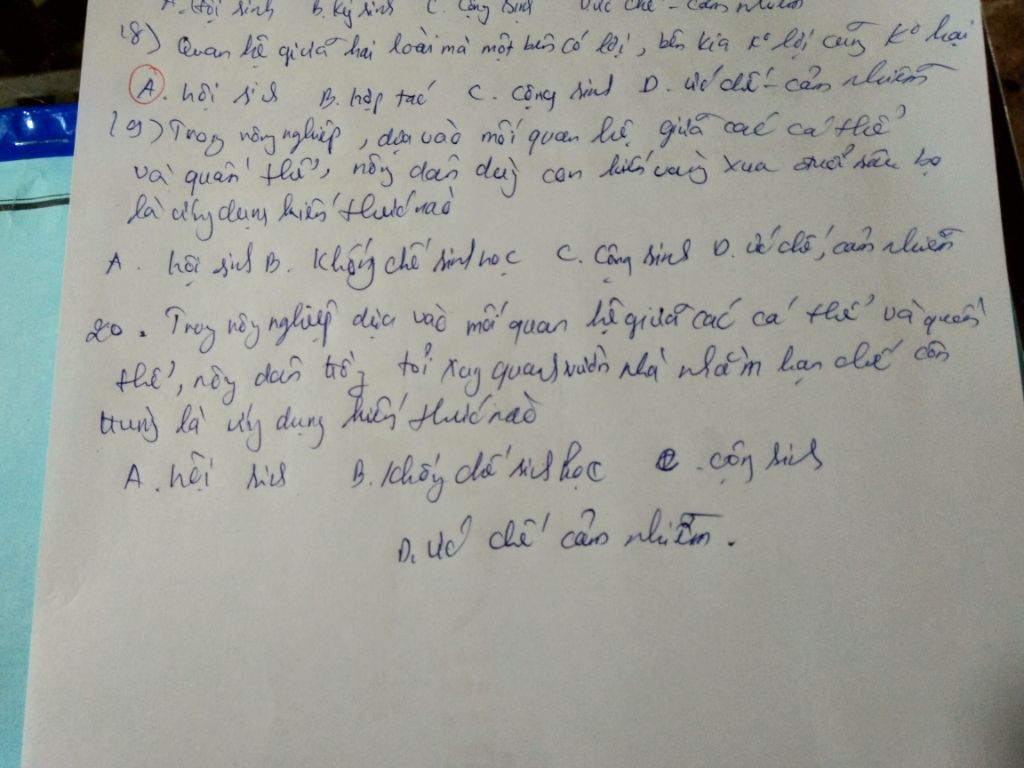 A. Hội sinh B. Ký sinh C. Cộng sinh D. ức chế - cảm nhiễm
18) Quan hệ giữa hai loài mà một bên có lợi, bên kia k° lợi cũng k° hại
A. hội sinh B. hợp tác C. Cộng sinh D. ức chế - cảm nhiễm
19) Trong nông nghiệp, dựa vào mối quan hệ giữa các cá thể
và quần thể, nông dân dùng con kiến vàng xua đuổi sâu bọ
là ứng dụng kiến thức nào
A. hội sinh B. Khống chế sinh học C. Cộng sinh D. ức chế, cảm nhiễm
20. Trong nông nghiệp dựa vào mối quan hệ giữa các cá thể và quần
thể, nông dân trồng tỏi xung quanh vườn nhà nhằm hạn chế côn
trùng là ứng dụng kiến thức nào
A. hội sinh B. Khống chế sinh học C. cộng sinh
D. ức chế cảm nhiễm.